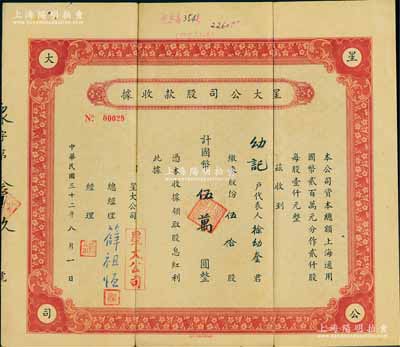 上海陽明拍賣
35股
2260
大
呈
據收款股司公大呈
No 00029
本公司資本總額上海通用
國幣貳百萬元分作貳仟股
每股壹仟元整
茲收到
幼記 戶代表人 徐幼奎 君
繳來股份 伍拾 股
計國幣 伍萬 圓整
憑本收據領取股息紅利
此據
呈大公司
呈大公司
總經理 薛祖恆
經理
中華民國三十二年八月一日
字第
玖
號
司
公
上海陽明拍賣